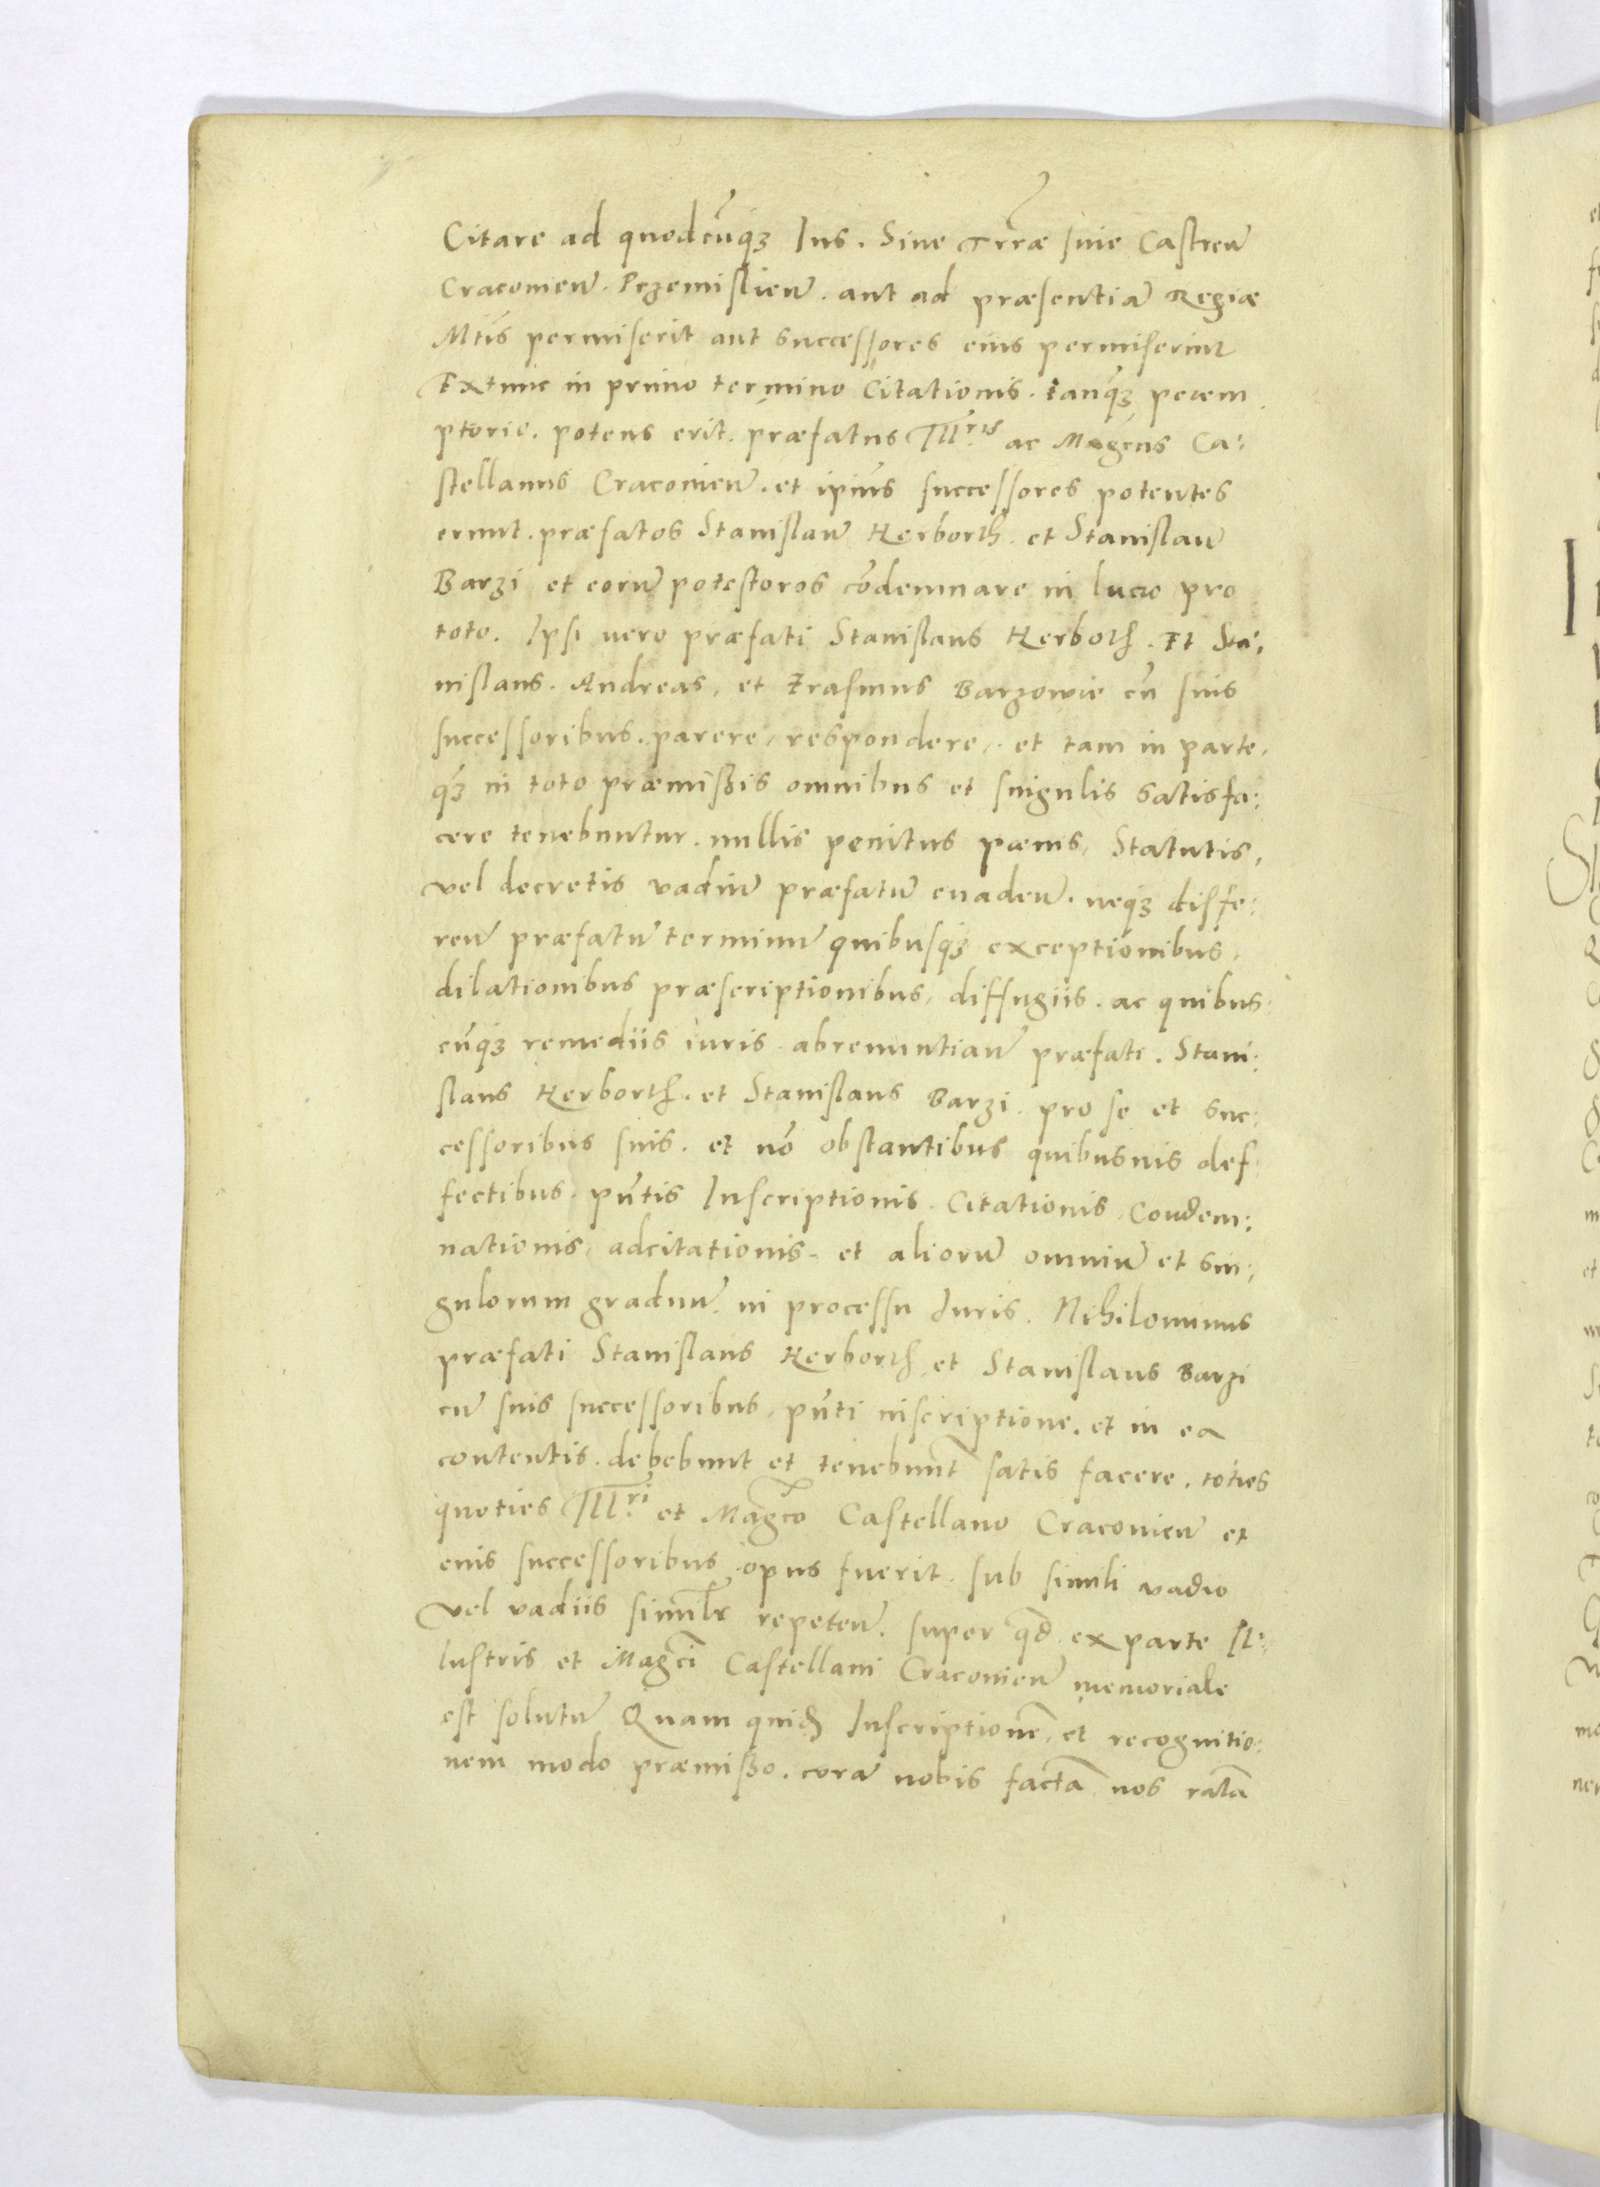 Citare ad quodcũq₃ Ius. Siue Trr̃æ siue Castreñ
Cracouieñ. Przemislieñ. aut ad præsentiã Regiæ
Mtis permiserit aut successores eius permiserint
Extunc in primo termino Citationis. tanq̃₃ perem
ptorie. potens erit. præfatus Ill:ris ac Magcus Ca:
stellanus Cracouieñ. et ipius successores potentes
erunt. præfatos Stanislaũ Herborth. et Stanislaũ
Barzi et eorũ potestoros cõdemnare in lucro pro
toto. Ipsi uero præfati Stanislaus Herboth. Et Sta:
nislaus. Andreas, et Erasmus Barzowie cũ suis
successoribus. parere, respondere, et tam in parte,
q̃₃ in toto præmißis omnibus et singulis satisfa:
cere tenebuntur. nullis penitus pœnis, Statutis,
vel decretis vadiũ præfatũ euadeñ. neq₃ diffe:
reñ præfatũ terminũ quibusq₃ exceptionibus,
dilationibus præscriptionibus, diffugiis. ac quibus:
cũq₃ remediis iuris. abrenuntiañ præfati. Stani:
slaus Herborth. et Stanislaus Barzi. pro se et suc:
cessoribus suis. et nõ obstantibus quibusuis def
fectibus. pñtis Inscriptionis. Citationis, Condem:
nationis, adcitationis. et aliorũ omniũ et sin:
gulorum graduũ in processu Iuris. Nihilominus
præfati Stanislaus Herborth et Stanislaus Barzi
cũ suis successoribus, pñti inscriptione. et in ea
contentis. debebunt et tenebunt̃ satis facere. toties
quoties Ill:ri et Magco Castellano Cracouieñ et
euis successoribus opus fuerit. sub simili vadio
vel vadiis similr repeteñ. super qđ ex parte Il:
lustris et Magci Castellani Cracouieñ memoriale
est solutũ Quam quid Inscriptionẽ, et recognitio:
nem modo præmißo. corã nobis factã nos ratã